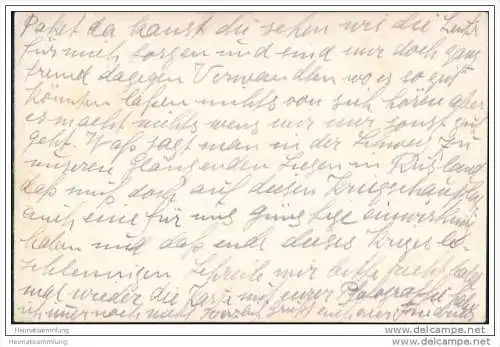 Paket da kanst du sehen wie die Leute
für mich sorgen und sind mir doch ganz
fremd dagegen Verwandten wo es so gut
könnten lassen nichts von sich hören aber
es macht nichts wens mir nur sonst gut
geht. Waß sagt man in der Schweiz zu
unseren Glänzenden Siegen in Rußland
daß muß doch auf diesen Kriegschauplaz
auch eine für uns günstige einwirkung
haben und daß ende dieses Krieges be-
schleunigen Schreibe mir bitte recht balt
mal wieder die Karte mit eurer Fotografie habe
ich immer noch nicht Herzlich grüßt euch euer Friedrich
Heimatsammlung
Heimatsammlung
www.delcampe.net